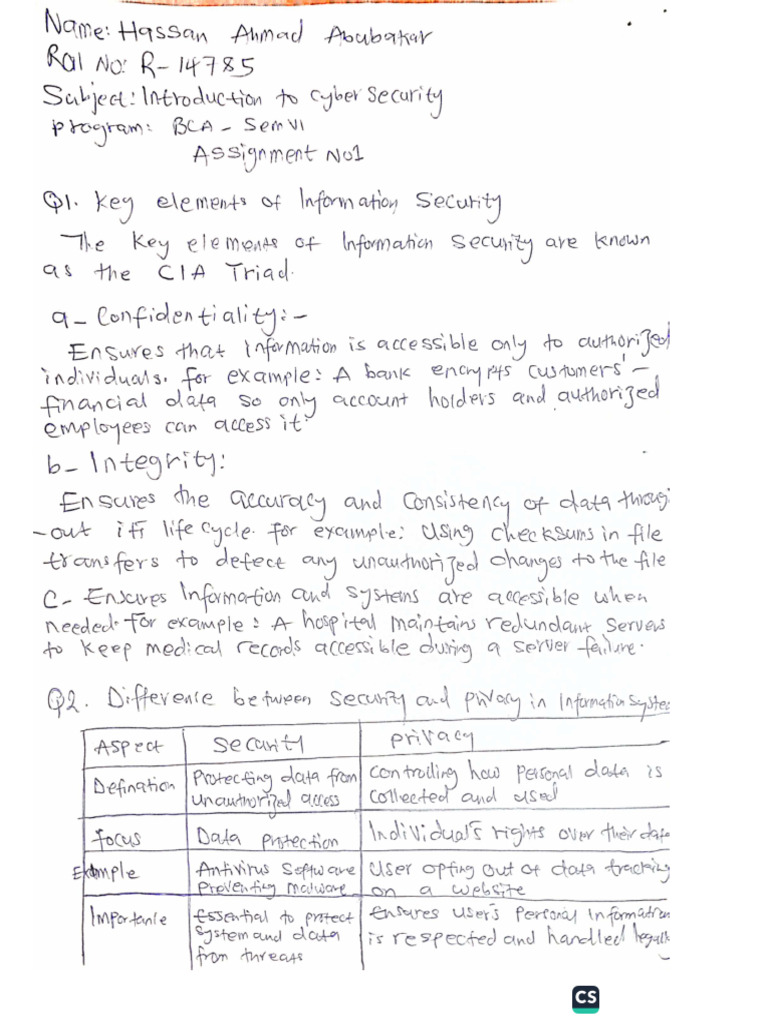 Name: Hassan Ahmad Abubakar
Roll No: R-14785
Subject: Introduction to Cyber Security
Program: BCA - Sem VI
Assignment No1
Q1. Key elements of Information Security
The Key elements of Information Security are known
as the CIA Triad.
a- Confidentiality:-
Ensures that information is accessible only to authorized
individuals. for example: A bank encrypts customers'-
financial data so only account holders and authorized
employees can access it.
b- Integrity:
Ensures the accuracy and consistency of data throug
-out it's life cycle. for example: Using checksums in file
transfers to detect any unauthorized changes to the file
C- Ensures Information and systems are accessible when
needed. For example: A hospital maintains redundant servers
to keep medical records accessible during a server failure.
Q2. Difference between security and privacy in Information System
Aspect Security Privacy
Defination Protecting data from Controlling how Personal data is
unauthorized access collected and used
focus Data protection Individual's rights over their data
Example Antivirus Software User opting out of data tracking
Preventing malware on a website
Importance Essential to protect Ensures user's Personal Information
System and data is respected and handled legally
from threats
CS